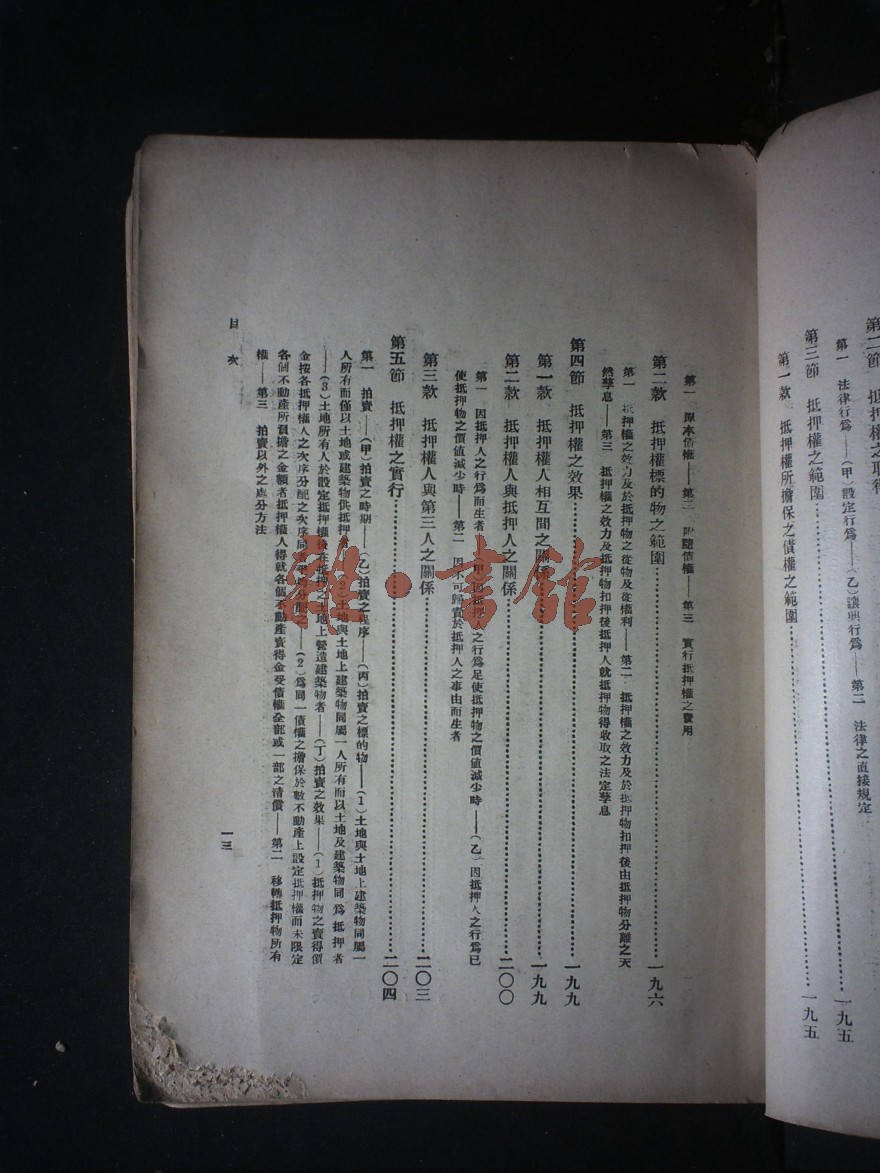 第三節 抵押權之範圍
第一 法律行爲——(甲)設定行爲——(乙)讓與行爲——第二 法律之直接規定
一九五
第一款 抵押權所擔保之債權之範圍
一九五
第一 原本債權——第二 附隨債權——第三 實行抵押權之費用
第二款 抵押權標的物之範圍
一九六
第一 抵押權之效力及於抵押物之從物及從權利——第二 抵押權之效力及於抵押物扣押後由抵押物分離之天
然孳息——第三 抵押權之效力及抵押物扣押後抵押人就抵押物得收取之法定孳息
第四節 抵押權之效果
一九九
第一款 抵押權人相互間之關係
一九九
第二款 抵押權人與抵押人之關係
二〇〇
第一 因抵押人之行爲而生者——(甲)因抵押人之行爲足使抵押物之價値減少時——(乙)因抵押人之行爲已
使抵押物之價値減少時——第二 因不可歸責於抵押人之事由而生者
第三款 抵押權人與第三人之關係
二〇三
第五節 抵押權之實行
二〇四
第一 拍賣——(甲)拍賣之時期——(乙)拍賣之程序——(丙)拍賣之標的物——(1)土地與土地上建築物同屬一
人所有而僅以土地或建築物供抵押者——(2)土地與土地上建築物同屬一人所有而以土地及建築物同爲抵押者
——(3)土地所有人於設定抵押權後在抵押之土地上營造建築物者——(丁)拍賣之效果——(1)抵押物之賣得價
金按各抵押權人之次序分配之次序同者平均分配之——(2)爲同一債權之擔保於數不動產上設定抵押權而未限定
各個不動產所負擔之金額者抵押權人得就各個不動產賣得金受債權全部或一部之清償——第二 移轉抵押物所有
權——第三 拍賣以外之處分方法
目次
一三
書館